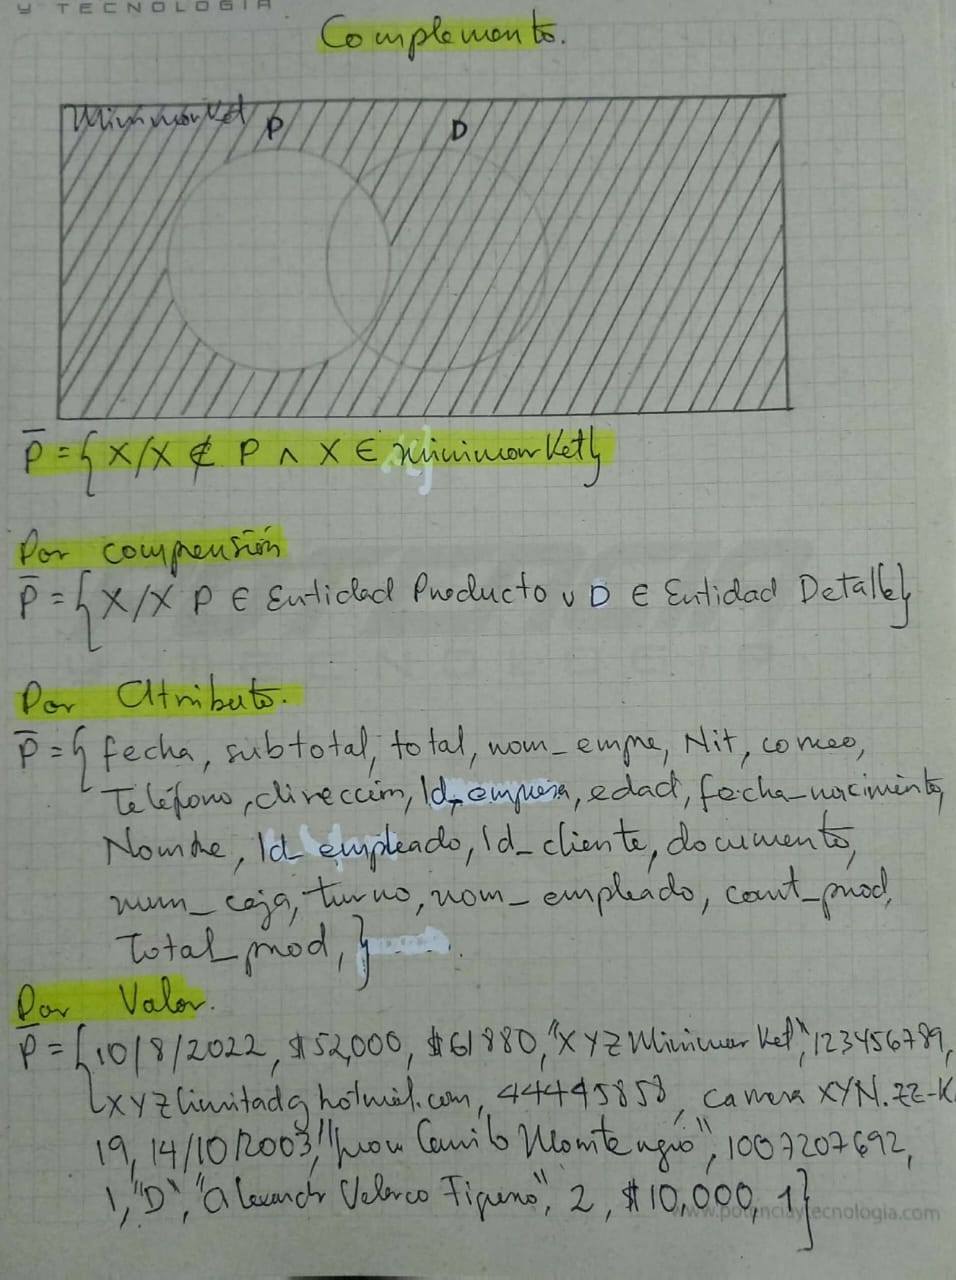 Y TECNOLOGIA
Complemento.
Minimarket
P D
P̅ = { X/X ∉ P ∧ X ∈ minimarket}
Por comprensión
P̅ = { X/X P ∈ Entidad Producto ∨ D ∈ Entidad Detalle}
Por Atributo.
P̅ = { fecha, subtotal, total, nom_empre, Nit, correo,
Teléfono, dirección, Id_empresa, edad, fecha_nacimiento,
Nombre, Id_empleado, Id_cliente, documento,
num_caja, turno, nom_empleado, cant_prod,
Total_prod, }
Por Valor.
P̅ = { 10/8/2022, $52,000, $61880, "XYZ Minimarket", 123456789,
XYZlimitad@hotmail.com, 44445858, carrera XYN.ZZ-K
19, 14/10/2003, " Camilo Montenegro", 1007207692,
1, "D", "Alexandr Velasco", 2, $10,000, 1}
www.potenciaytecnologia.com